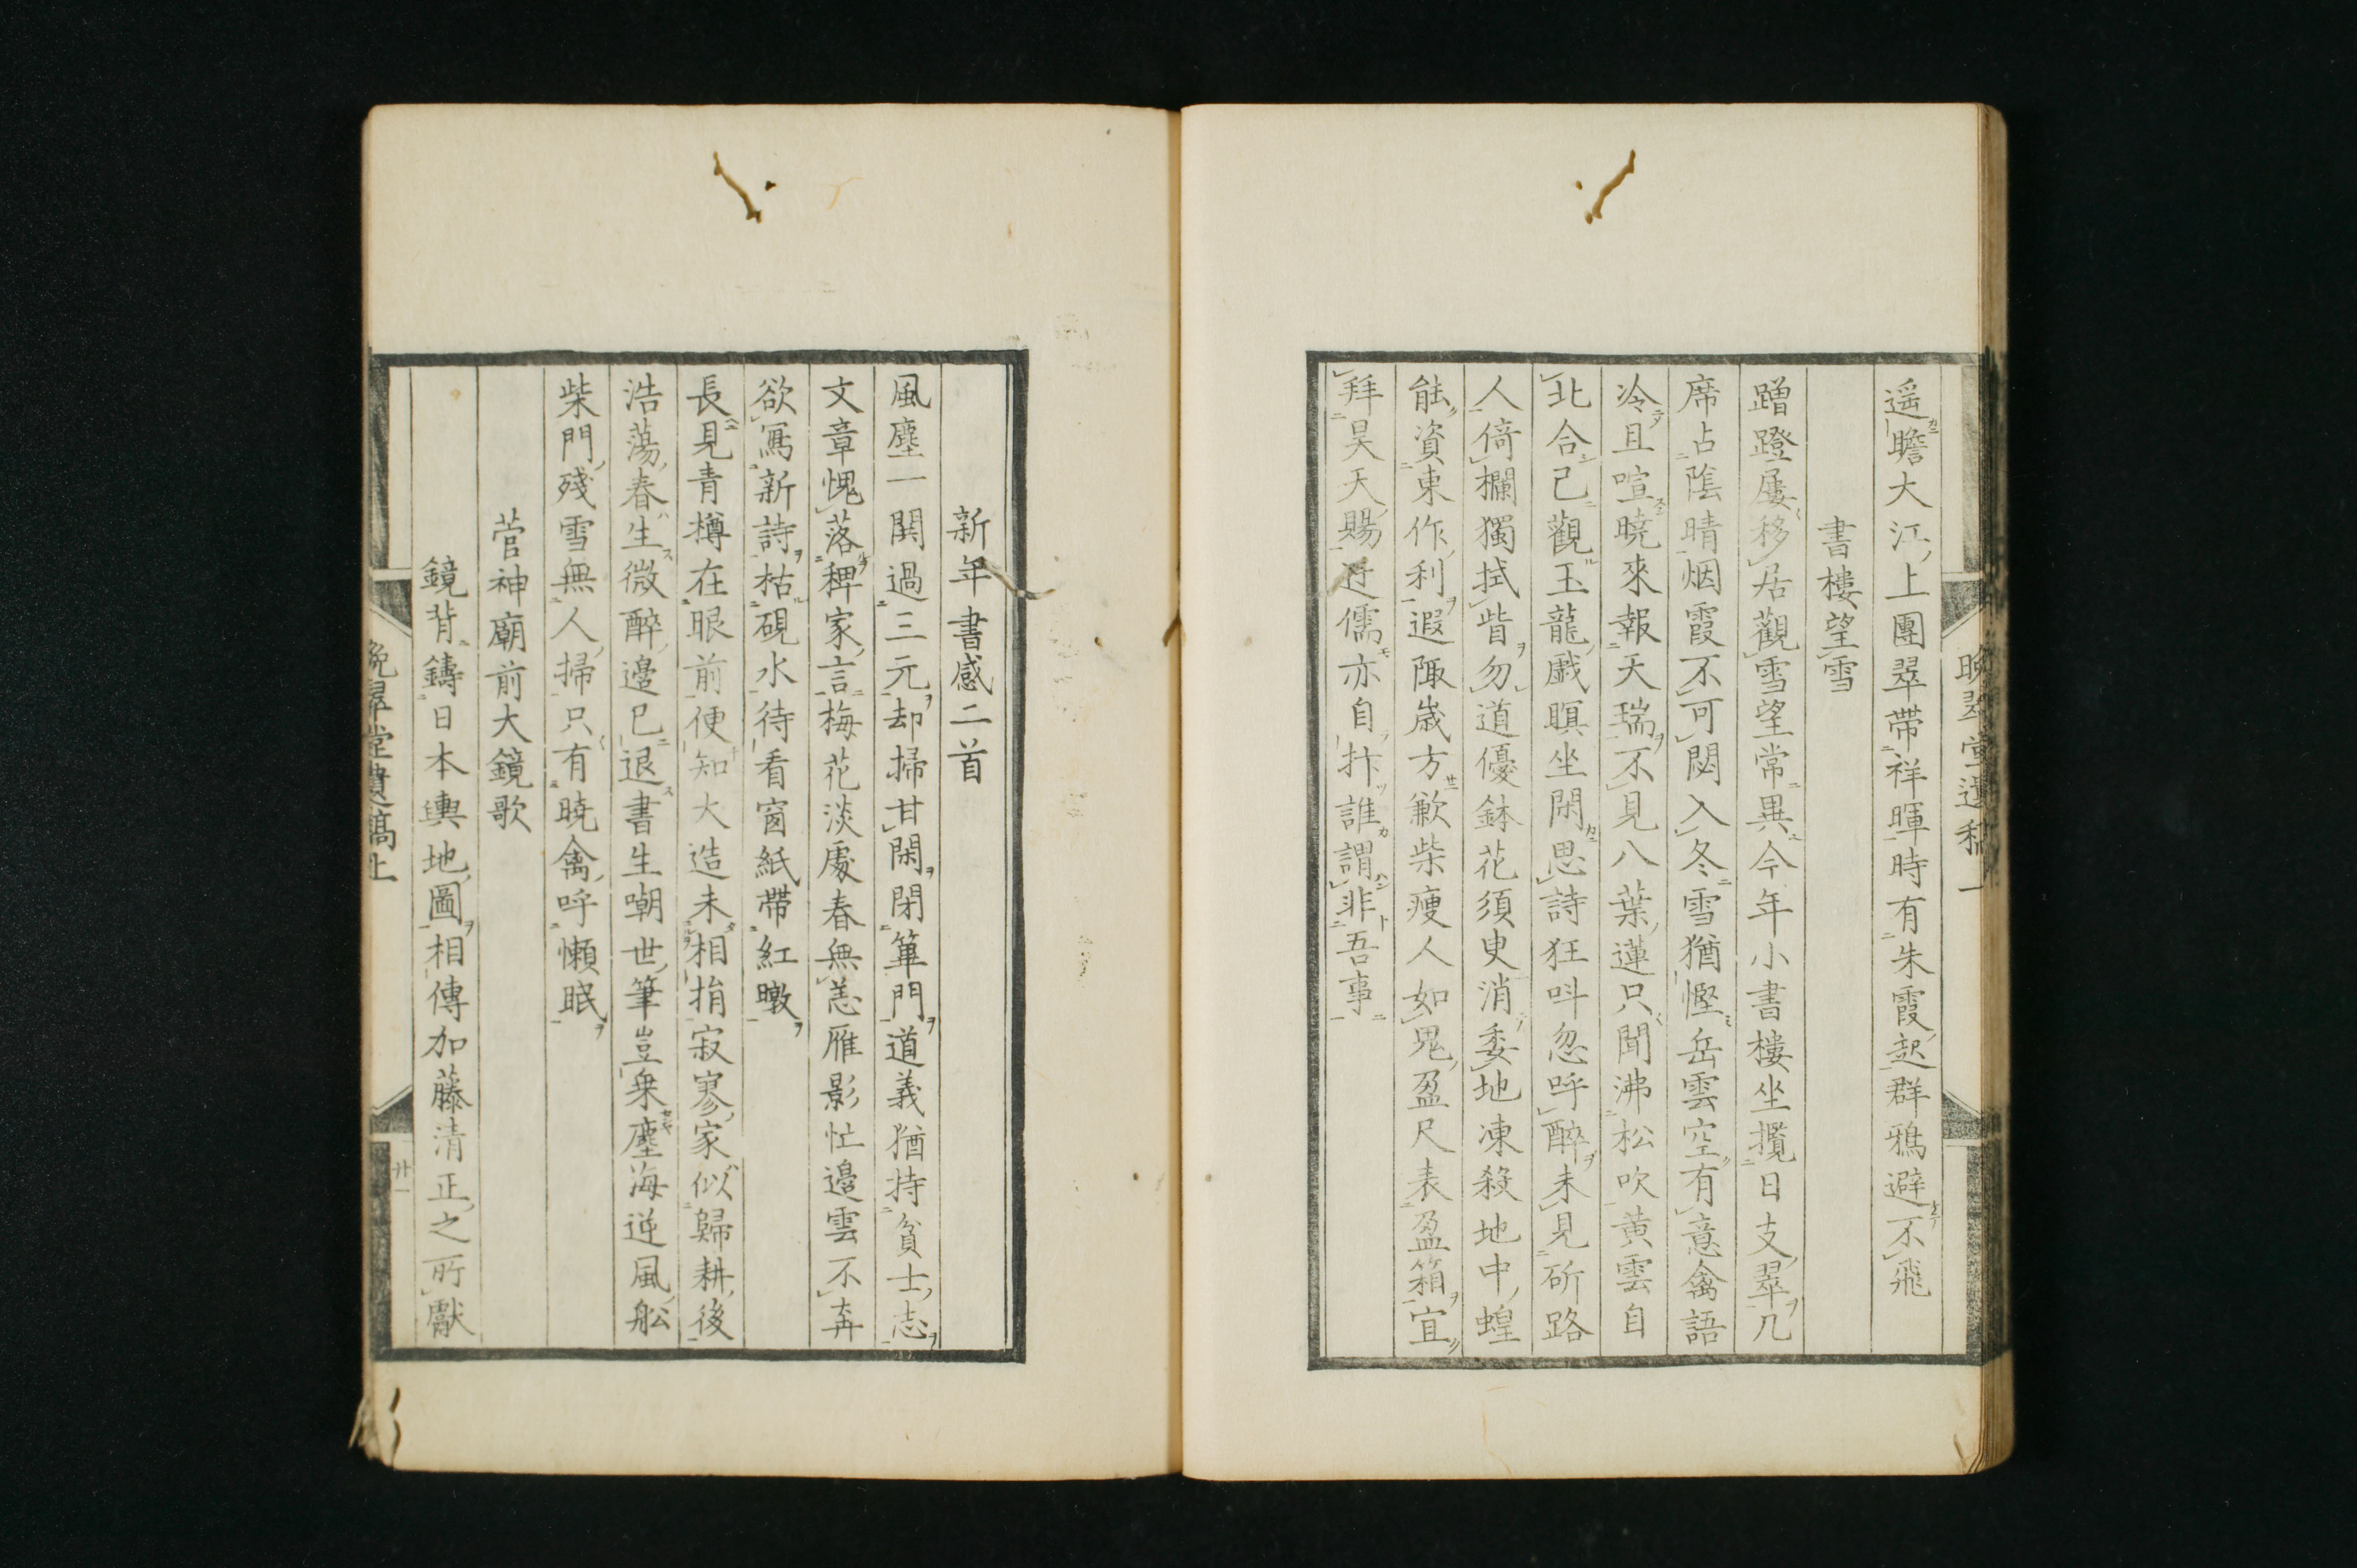 遥瞻大江上團翠帶祥暉時有朱霞起群鴉避不飛
書樓望雪
蹭蹬屢移居觀雪望常異今年小書樓坐攬日支翠几
席占陰晴烟霞不可閟入冬雪猶慳岳雲空有意禽語
冷且喧曉來報天瑞不見八葉蓮只聞沸松吹黄雲自
北合已觀玉龍戯瞑坐閑思詩狂呌忽呼醉未見斫路
人倚欄獨拭眥勿道優鉢花須臾消委地凍殺地中蝗
能資東作利遐陬歳方歉柴痩人如鬼盈尺表盈箱宜
拜昊天賜迂儒亦自抃誰謂非吾事
晩翠堂遺稿
新年書感二首
風塵一関過三元却掃甘閑閉篳門道義猶持貧士志
文章愧落稗家言梅花淡處春無恙雁影忙邊雲不奔
欲冩新詩枯硯水待看窗紙帶紅暾
長見青樽在眼前便知大造未相捐寂寥家似歸耕後
浩蕩春生微醉邊已退書生嘲世筆豈乗塵海逆風舩
柴門殘雪無人掃只有曉禽呼懶眠
菅神廟前大鏡歌
鏡背鑄日本輿地圖相傳加藤清正之所獻
晩翠堂遺稿上
廿一